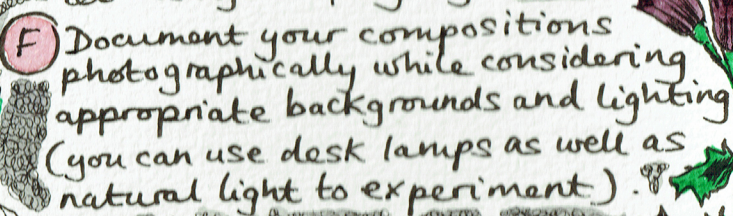 F Document your compositions
photographically while considering
appropriate backgrounds and lighting
(you can use desk lamps as well as
natural light to experiment).